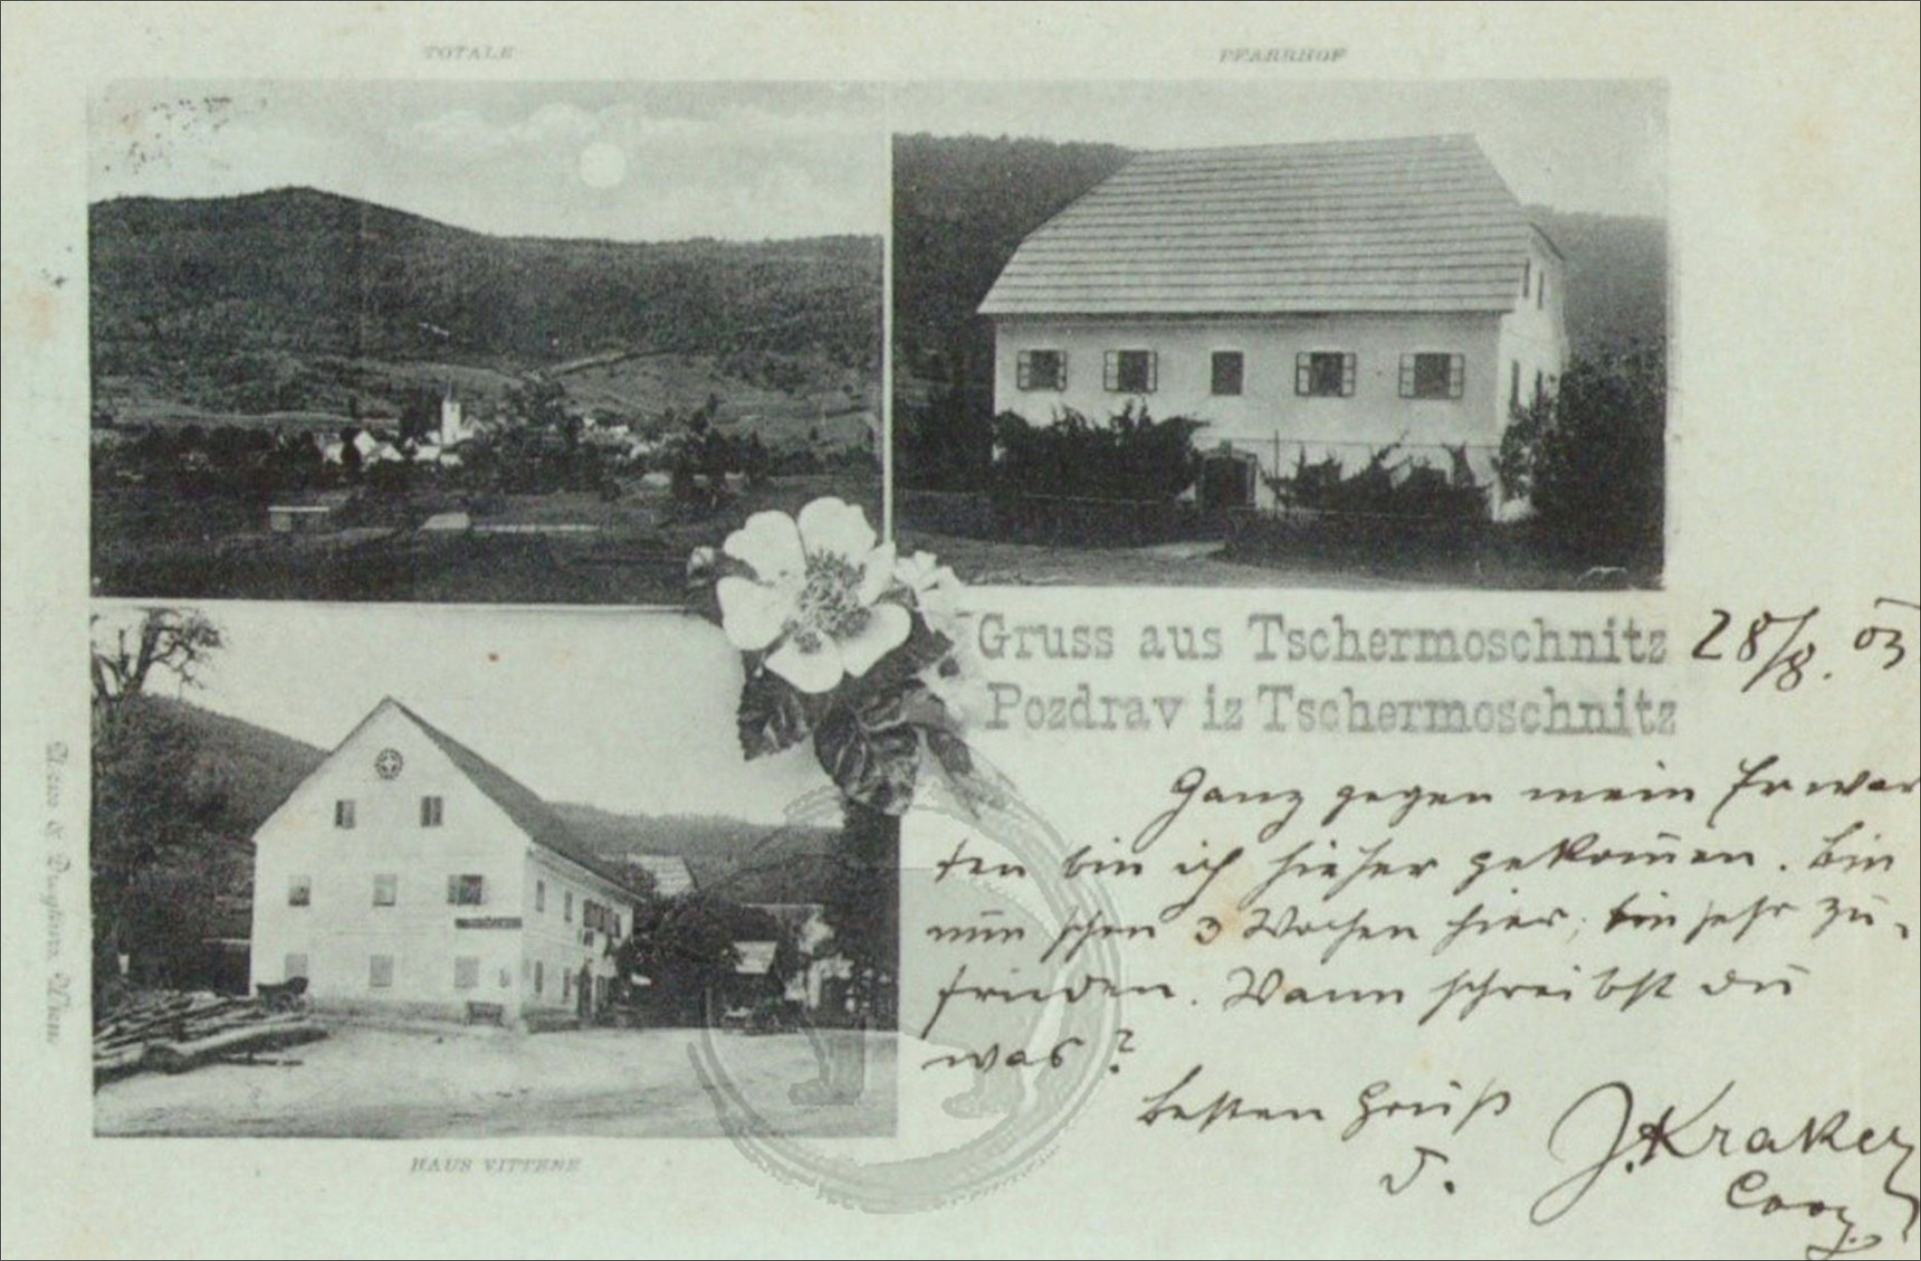 TOTALE
PFARRHOF
Gruss aus Tschermoschnitz
Pozdrav iz Tschermoschnitz
28/8. 03
Ganz gegen mein Erwar
ten bin ich hieher gekom̄en. Bin
nun schon 3 Wochen hier, bin sehr zu-
frieden. Wann schreibst du
was?
Besten Gruß
D.
J. Kraker
Coop.
HAUS VITTENE
Wien